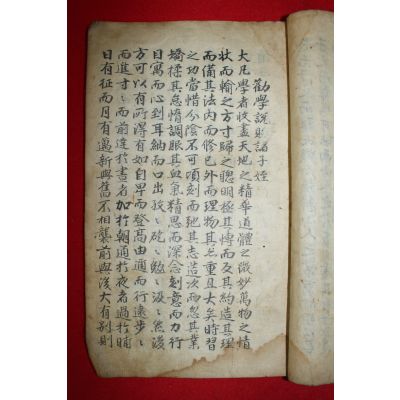 勸學說贈諸子姪
大凡學者收盡天地之精華道體之微妙萬物之情
狀而輸之方寸歸之聰明極其博而及其約造其理
而備其法內而修已外而理物其為重且大矣時習
之功當惜分陰不可頃刻而弛其志造次而忽其業
矯揉其怠惰調賑其血氣精思而深念刻意而力行
目寓而心到耳納而口出孜〻矻〻勉〻汲〻然後
方可以有所得有如自卑而登高由邇而行遠步〻
而進寸〻而前達於晝者加於朝通於夜者過於晡
日有征而月有邁新與舊不相襲前與後大有別則